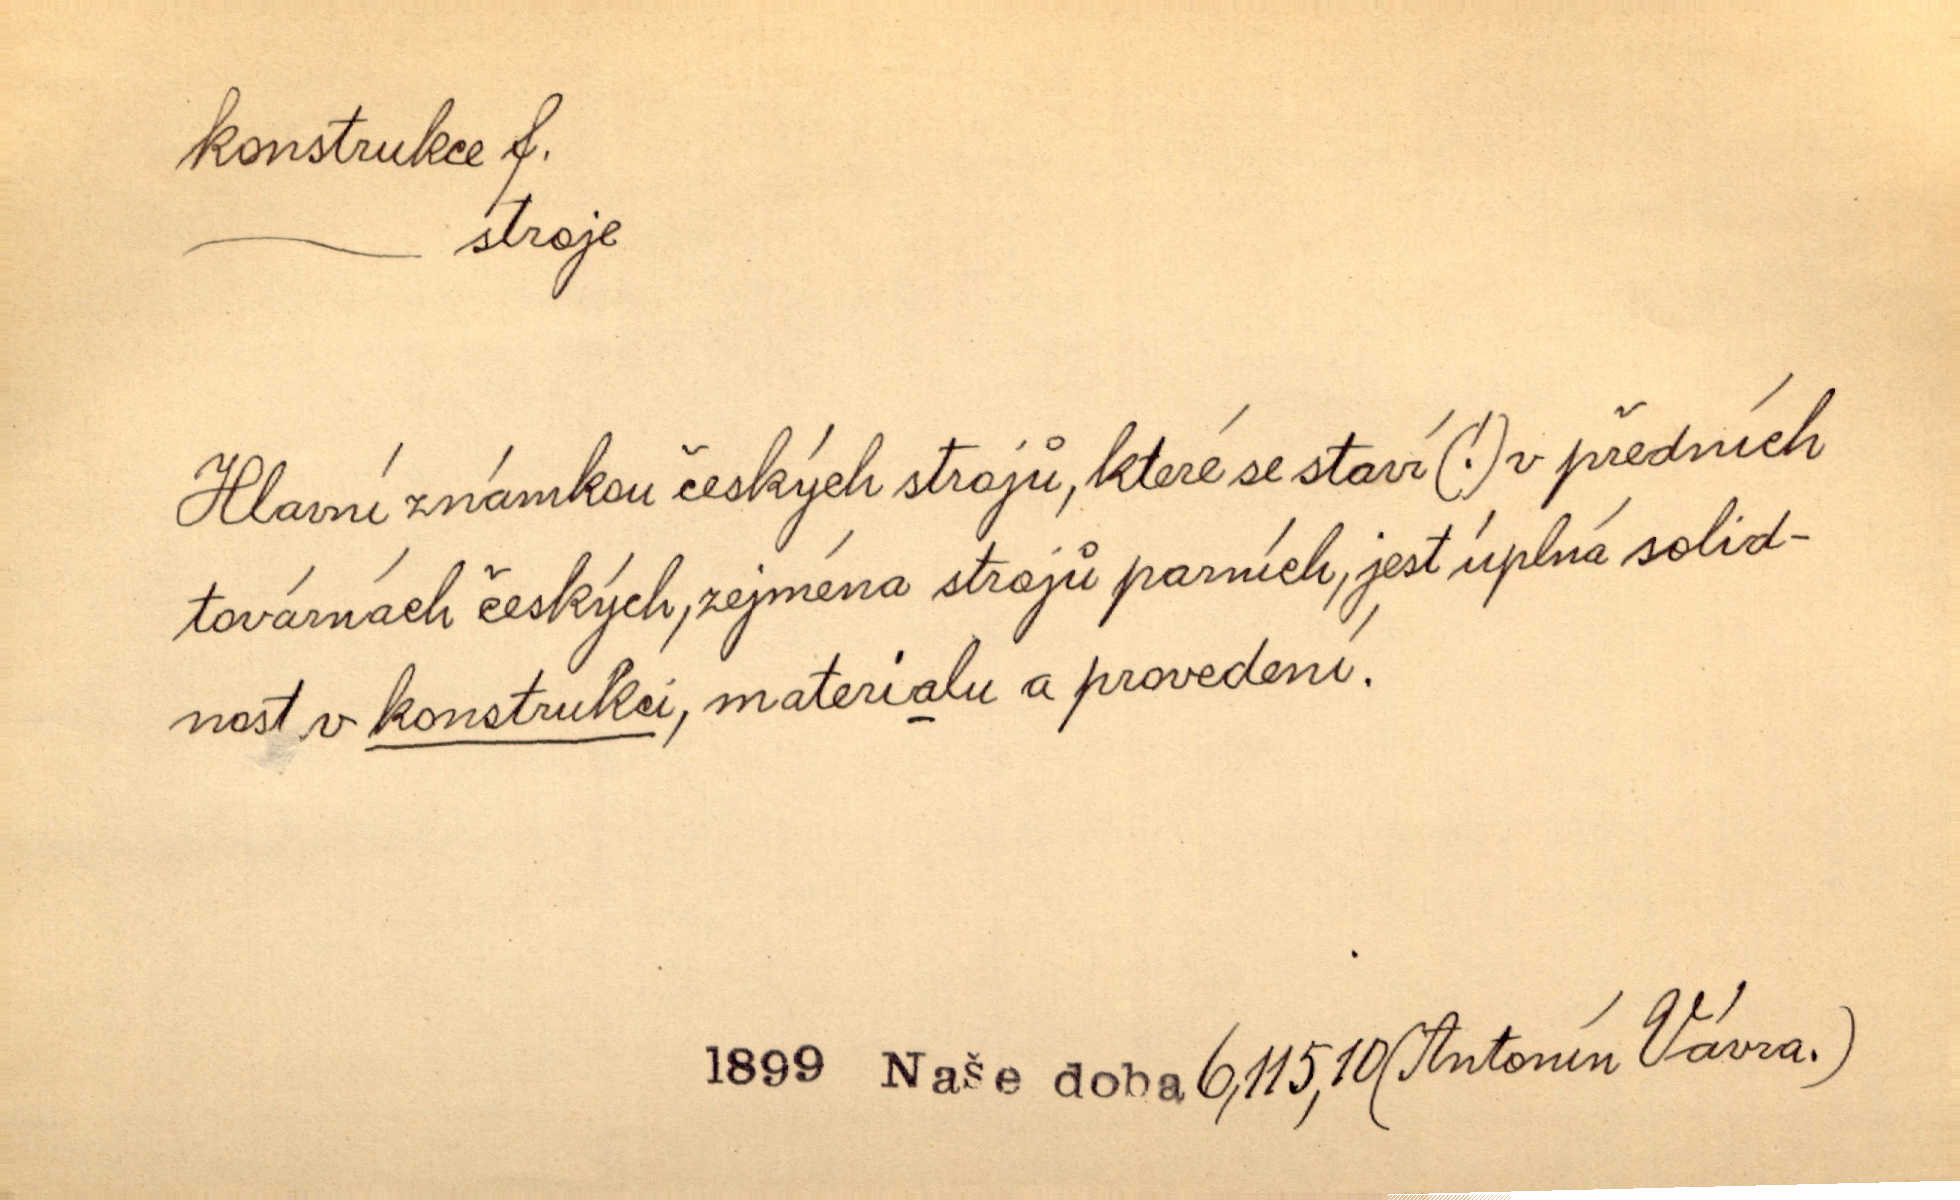 konstrukce f.
stroje
Hlavní známkou českých strojů, které se staví (!) v předních
továrnách českých, zejména strojů parních, jest úplná solid-
nost v konstrukci, materialu a provedení.
1899 Naše doba 6,115,10 (Antonín Vávra.)